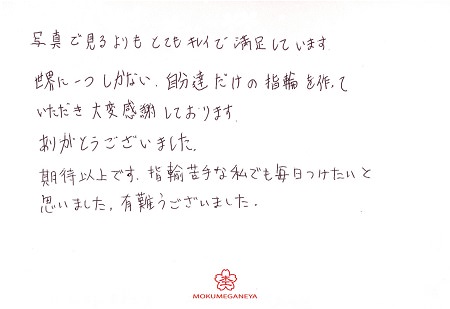 写真で見るよりも とても キレイで 満足しています
世界に一つしかない、自分達だけの指輪を作って
いただき 大変感謝しております
ありがとうございました。
期待以上です。指輪苦手な私でも毎日つけたいと
思いました。有難うございました。
MOKUMEGANEYA